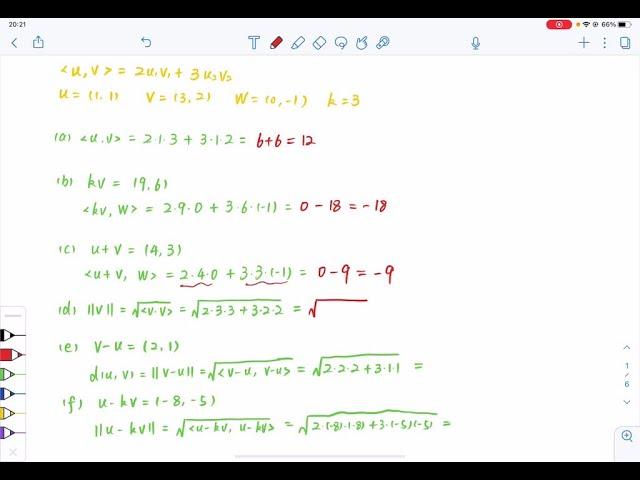 20:21
66%
<u, v> = 2u₁v₁ + 3u₂v₂
u = (1, 1) v = (3, 2) w = (0, -1) k = 3
(a) <u, v> = 2·1·3 + 3·1·2 = 6+6 = 12
(b) kv = (9, 6)
<kv, w> = 2·9·0 + 3·6·(-1) = 0 - 18 = -18
(c) u+v = (4, 3)
<u+v, w> = 2·4·0 + 3·3·(-1) = 0-9 = -9
(d) ||v|| = √<v·v> = √2·3·3 + 3·2·2 = √
(e) v-u = (2, 1)
d(u, v) = ||v-u|| = √<v-u, v-u> = √2·2·2 + 3·1·1 =
(f) u-kv = (-8, -5)
||u-kv|| = √<u-kv, u-kv> = √2·(-8)·(-8) + 3·(-5)(-5) =
1
/
6